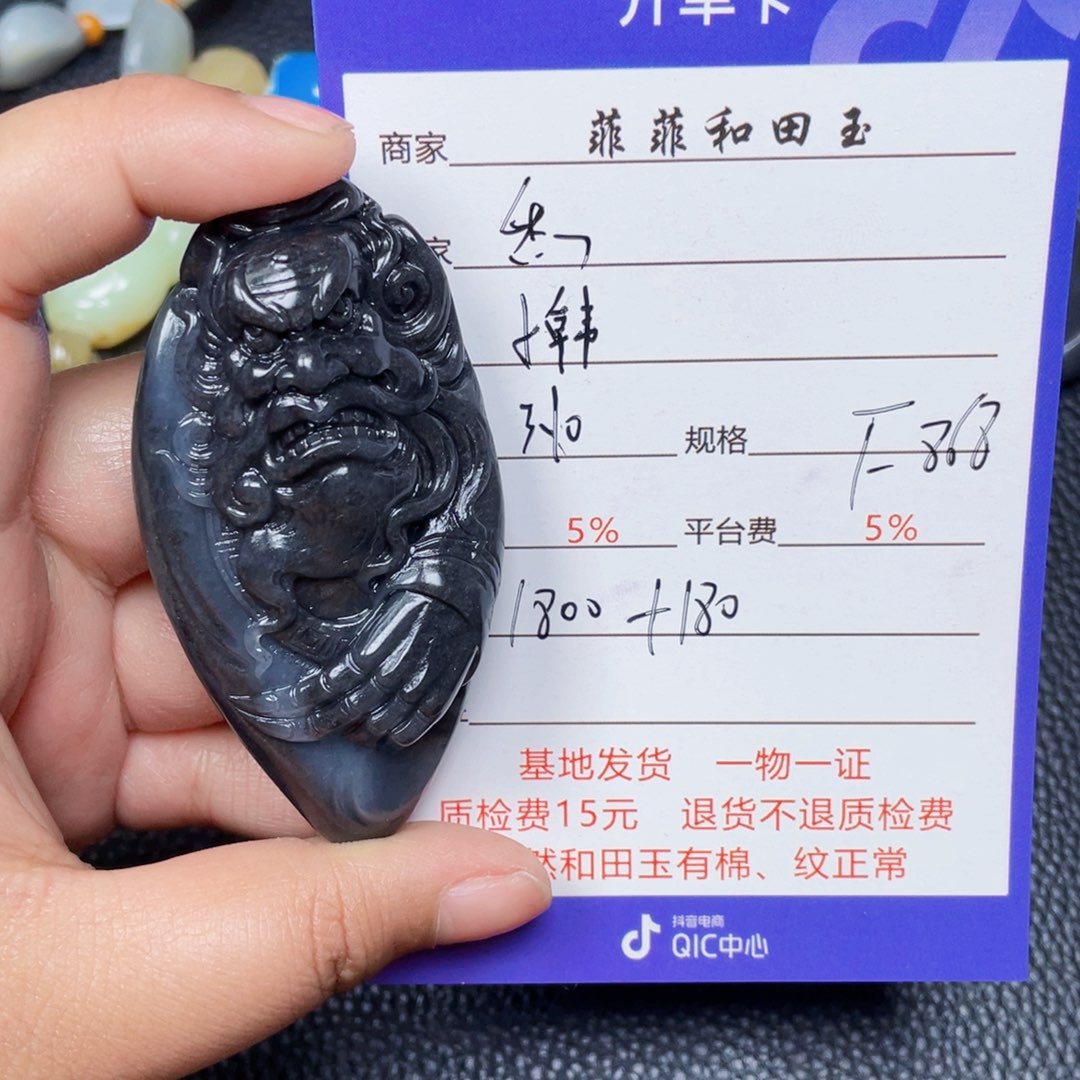 开单卡
商家 菲菲和田玉
家
规格
5% 平台费 5%
1800+180
基地发货 一物一证
质检费15元 退货不退质检费
然和田玉有棉、纹正常
抖音电商
QIC中心